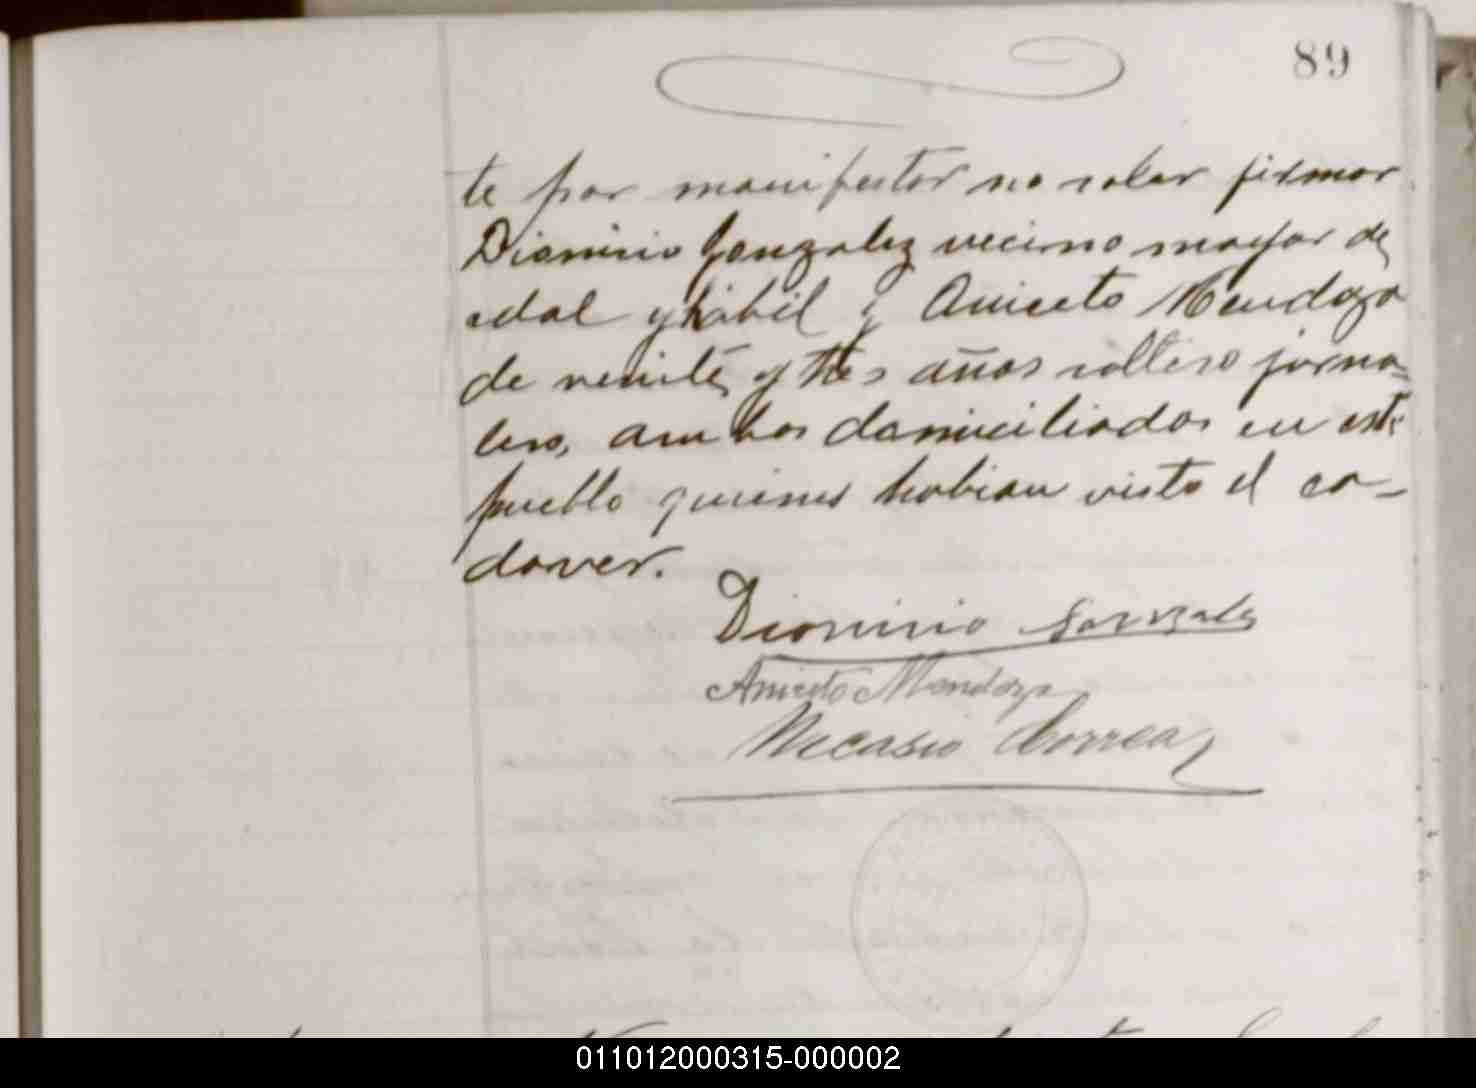 89
te por manifestar no saber firmar
Dionisio Gonzalez vecino mayor de
edad y habil y Aniceto Mendoza
de veinte y tres años soltero jorna-
lero, ambos domiciliados en este
pueblo quienes habian visto el ca-
daver.
Dionisio Gonzales
Aniceto Mendoza
Necasio Correa
011012000315-000002